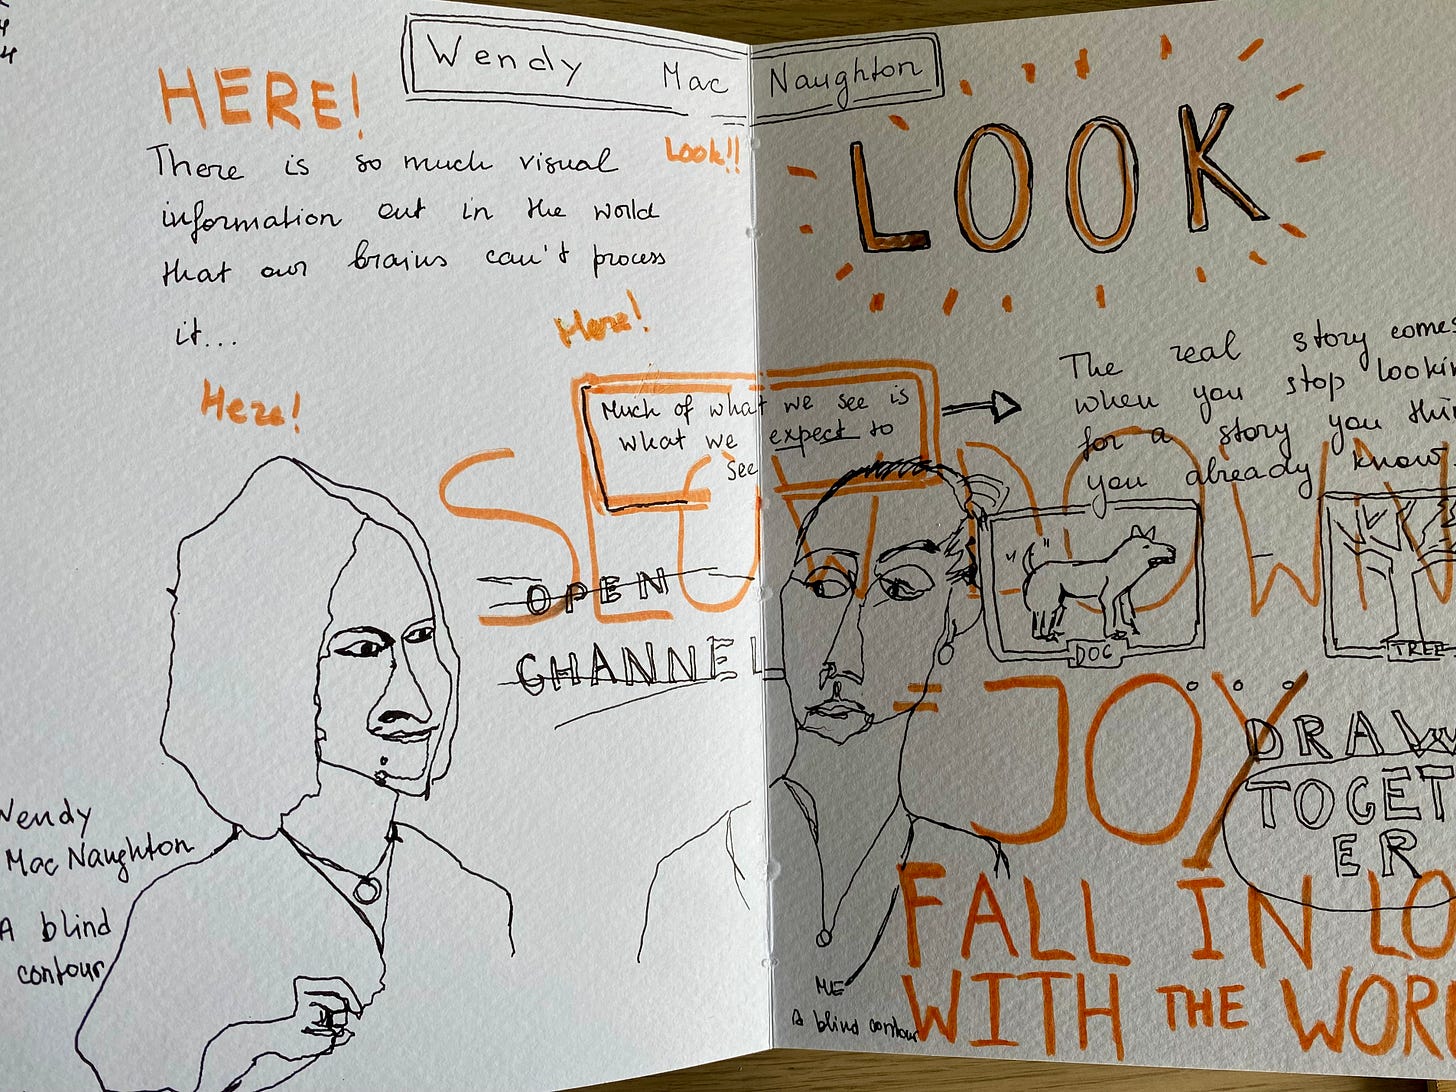 Wendy Mac Naughton
HERE!
There is so much visual
information out in the world
that our brains can't process
it...
Look!!
Here!
Here!
LOOK
Much of what we see is
what we expect to
see
The real story comes
when you stop
for a story you
you already know
SLOW DOWN
OPEN
CHANNEL
DOG
TREE
= JOY
DRAW
TOGET
ER
FALL IN
WITH THE
Wendy
Mac Naughton
A blind
contour
ME
A blind contour